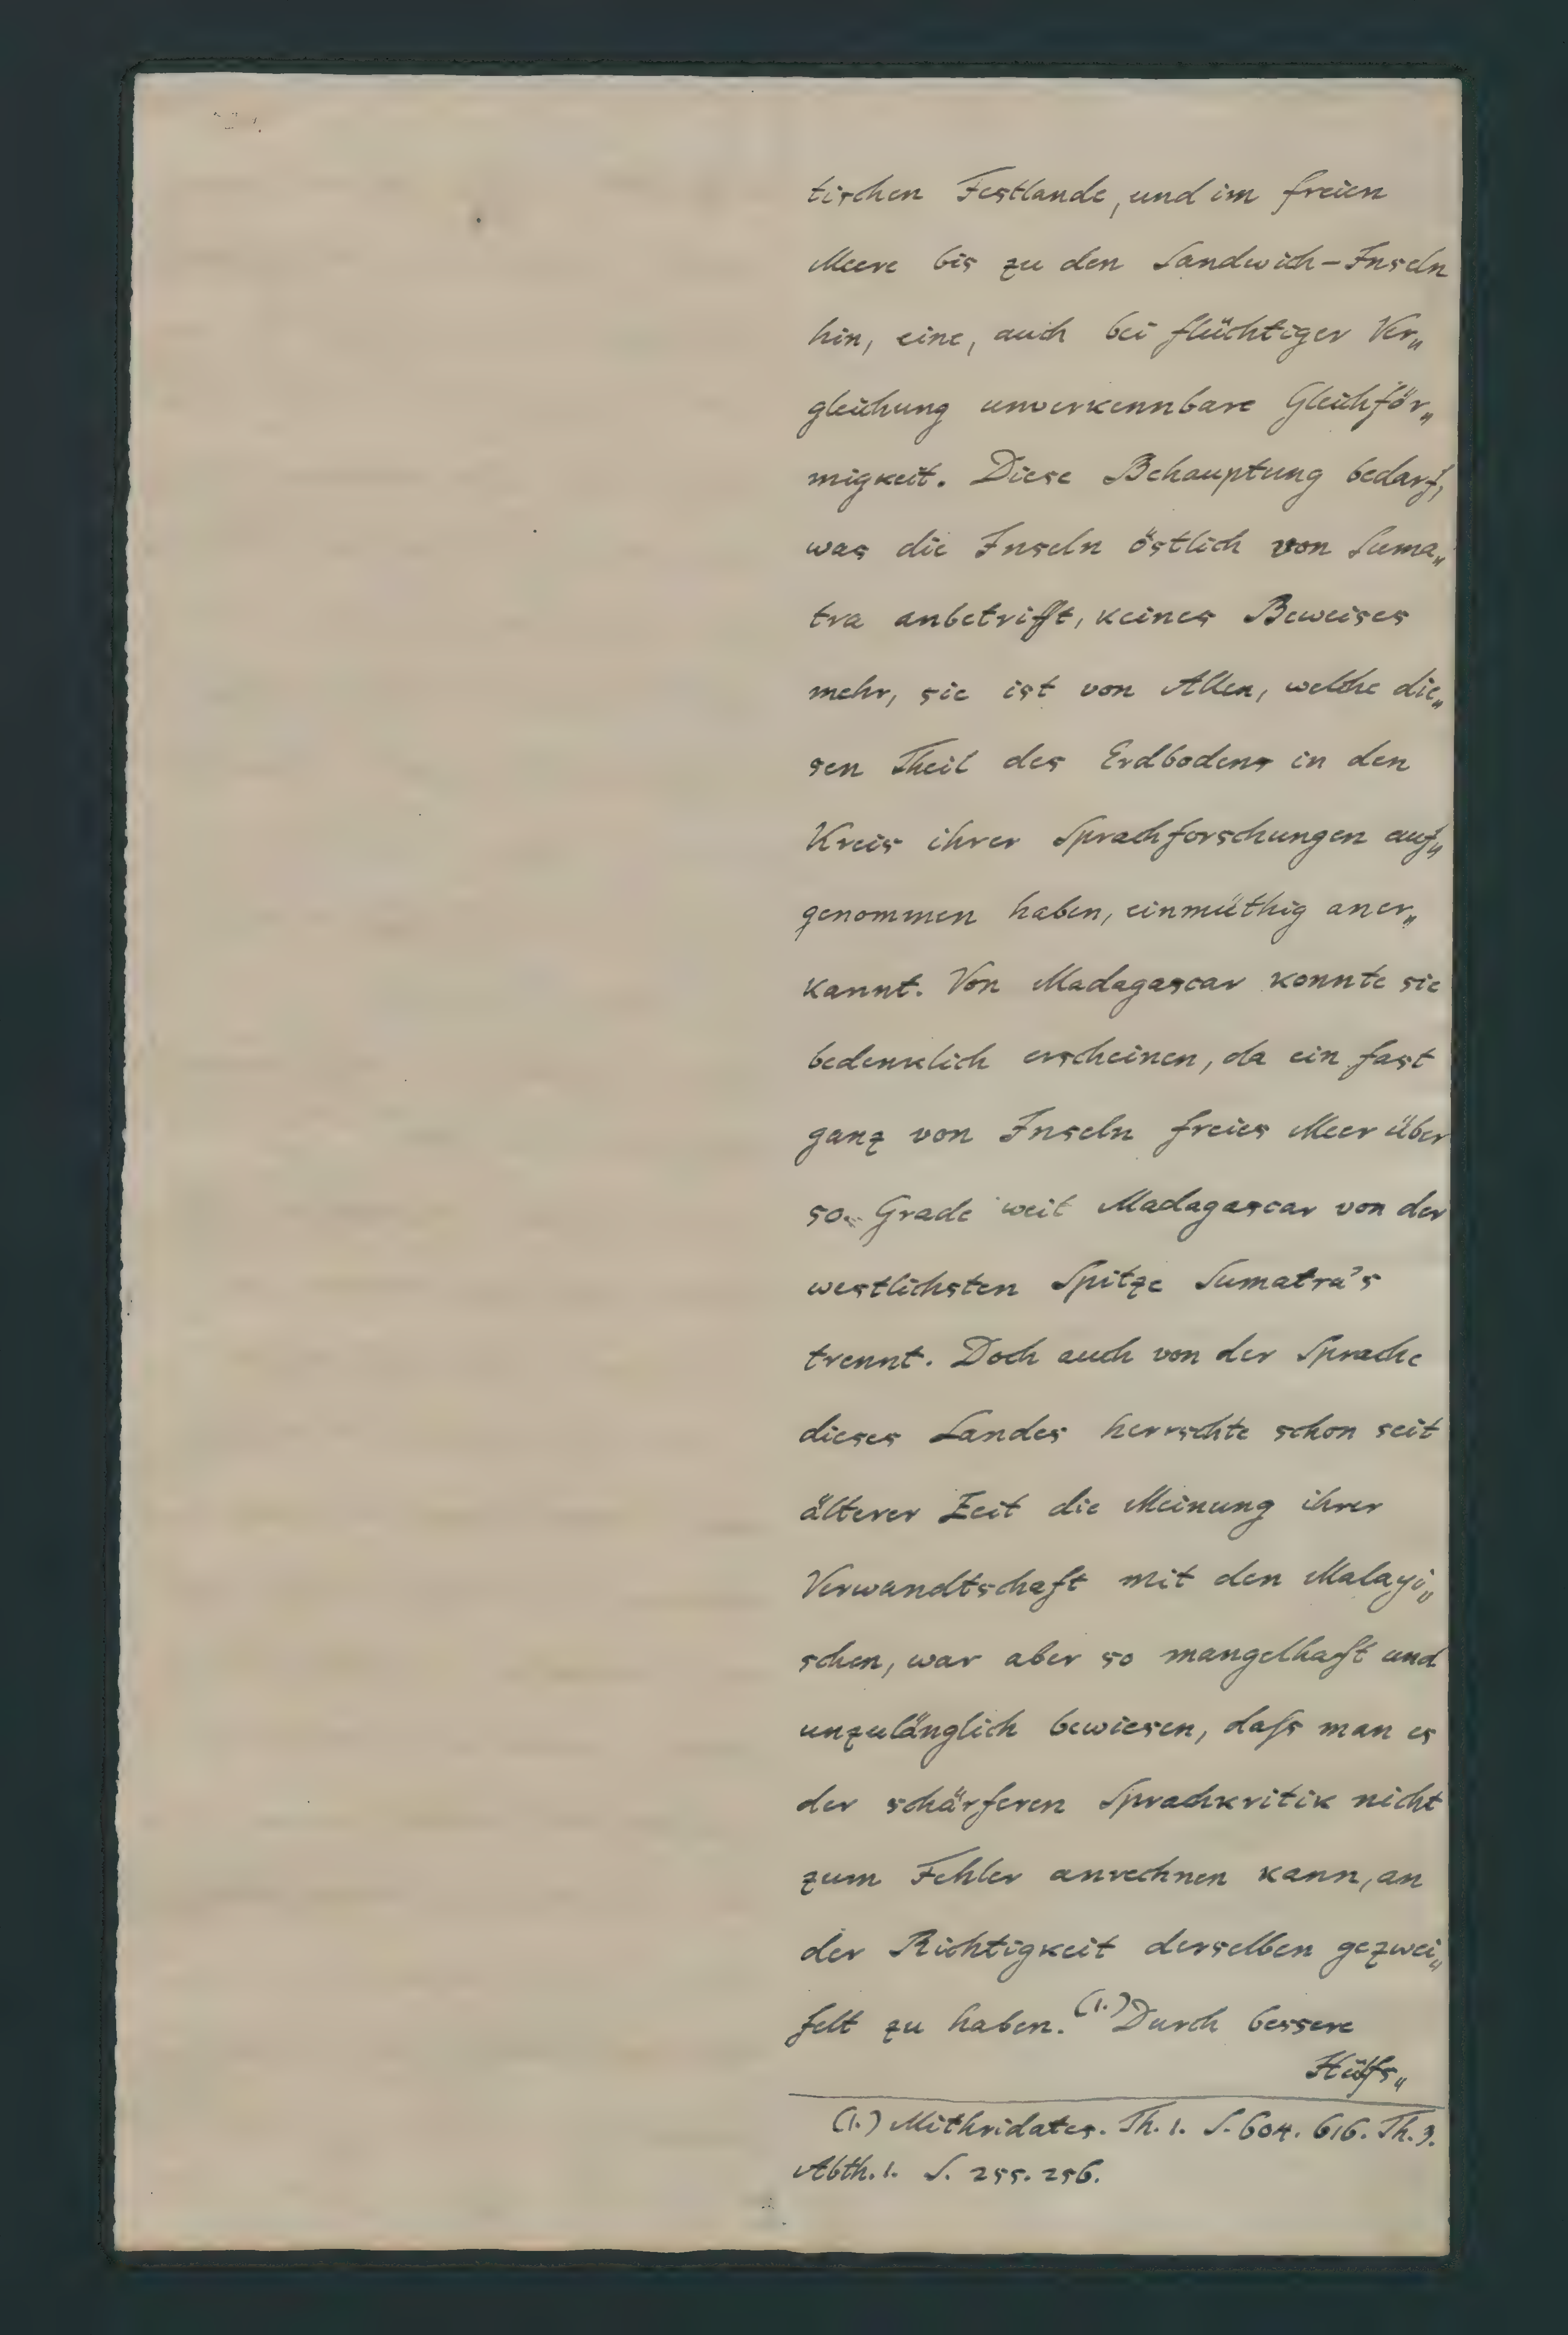 tischen Festlande, und im freien
Meere bis zu den Sandwich-Inseln
hin, eine, auch bei flüchtiger Ver„
gleichung unverkennbare Gleichför„
migkeit. Diese Behauptung bedarf,
was die Inseln östlich von Suma„
tra anbetrifft, keines Beweises
mehr, sie ist von Allen, welche die„
sen Theil des Erdbodens in den
Kreis ihrer Sprachforschungen auf„
genommen haben, einmüthig aner„
kannt. Von Madagascar konnte sie
bedenklich erscheinen, da ein fast
ganz von Inseln freies Meer über
50. Grade weit Madagascar von der
westlichsten Spitze Sumatra's
trennt. Doch auch von der Sprache
dieses Landes herrschte schon seit
älterer Zeit die Meinung ihrer
Verwandtschaft mit den Malayi„
schen, war aber so mangelhaft und
unzulänglich bewiesen, daſs man es
der schärferen Sprachkritik nicht
zum Fehler anrechnen kann, an
der Richtigkeit derselben gezwei„
felt zu haben.(1.) Durch bessere
Hülfs„
(1.) Mithridates. Th. 1. S. 604. 616. Th. 3.
Abth. 1. S. 255. 256.